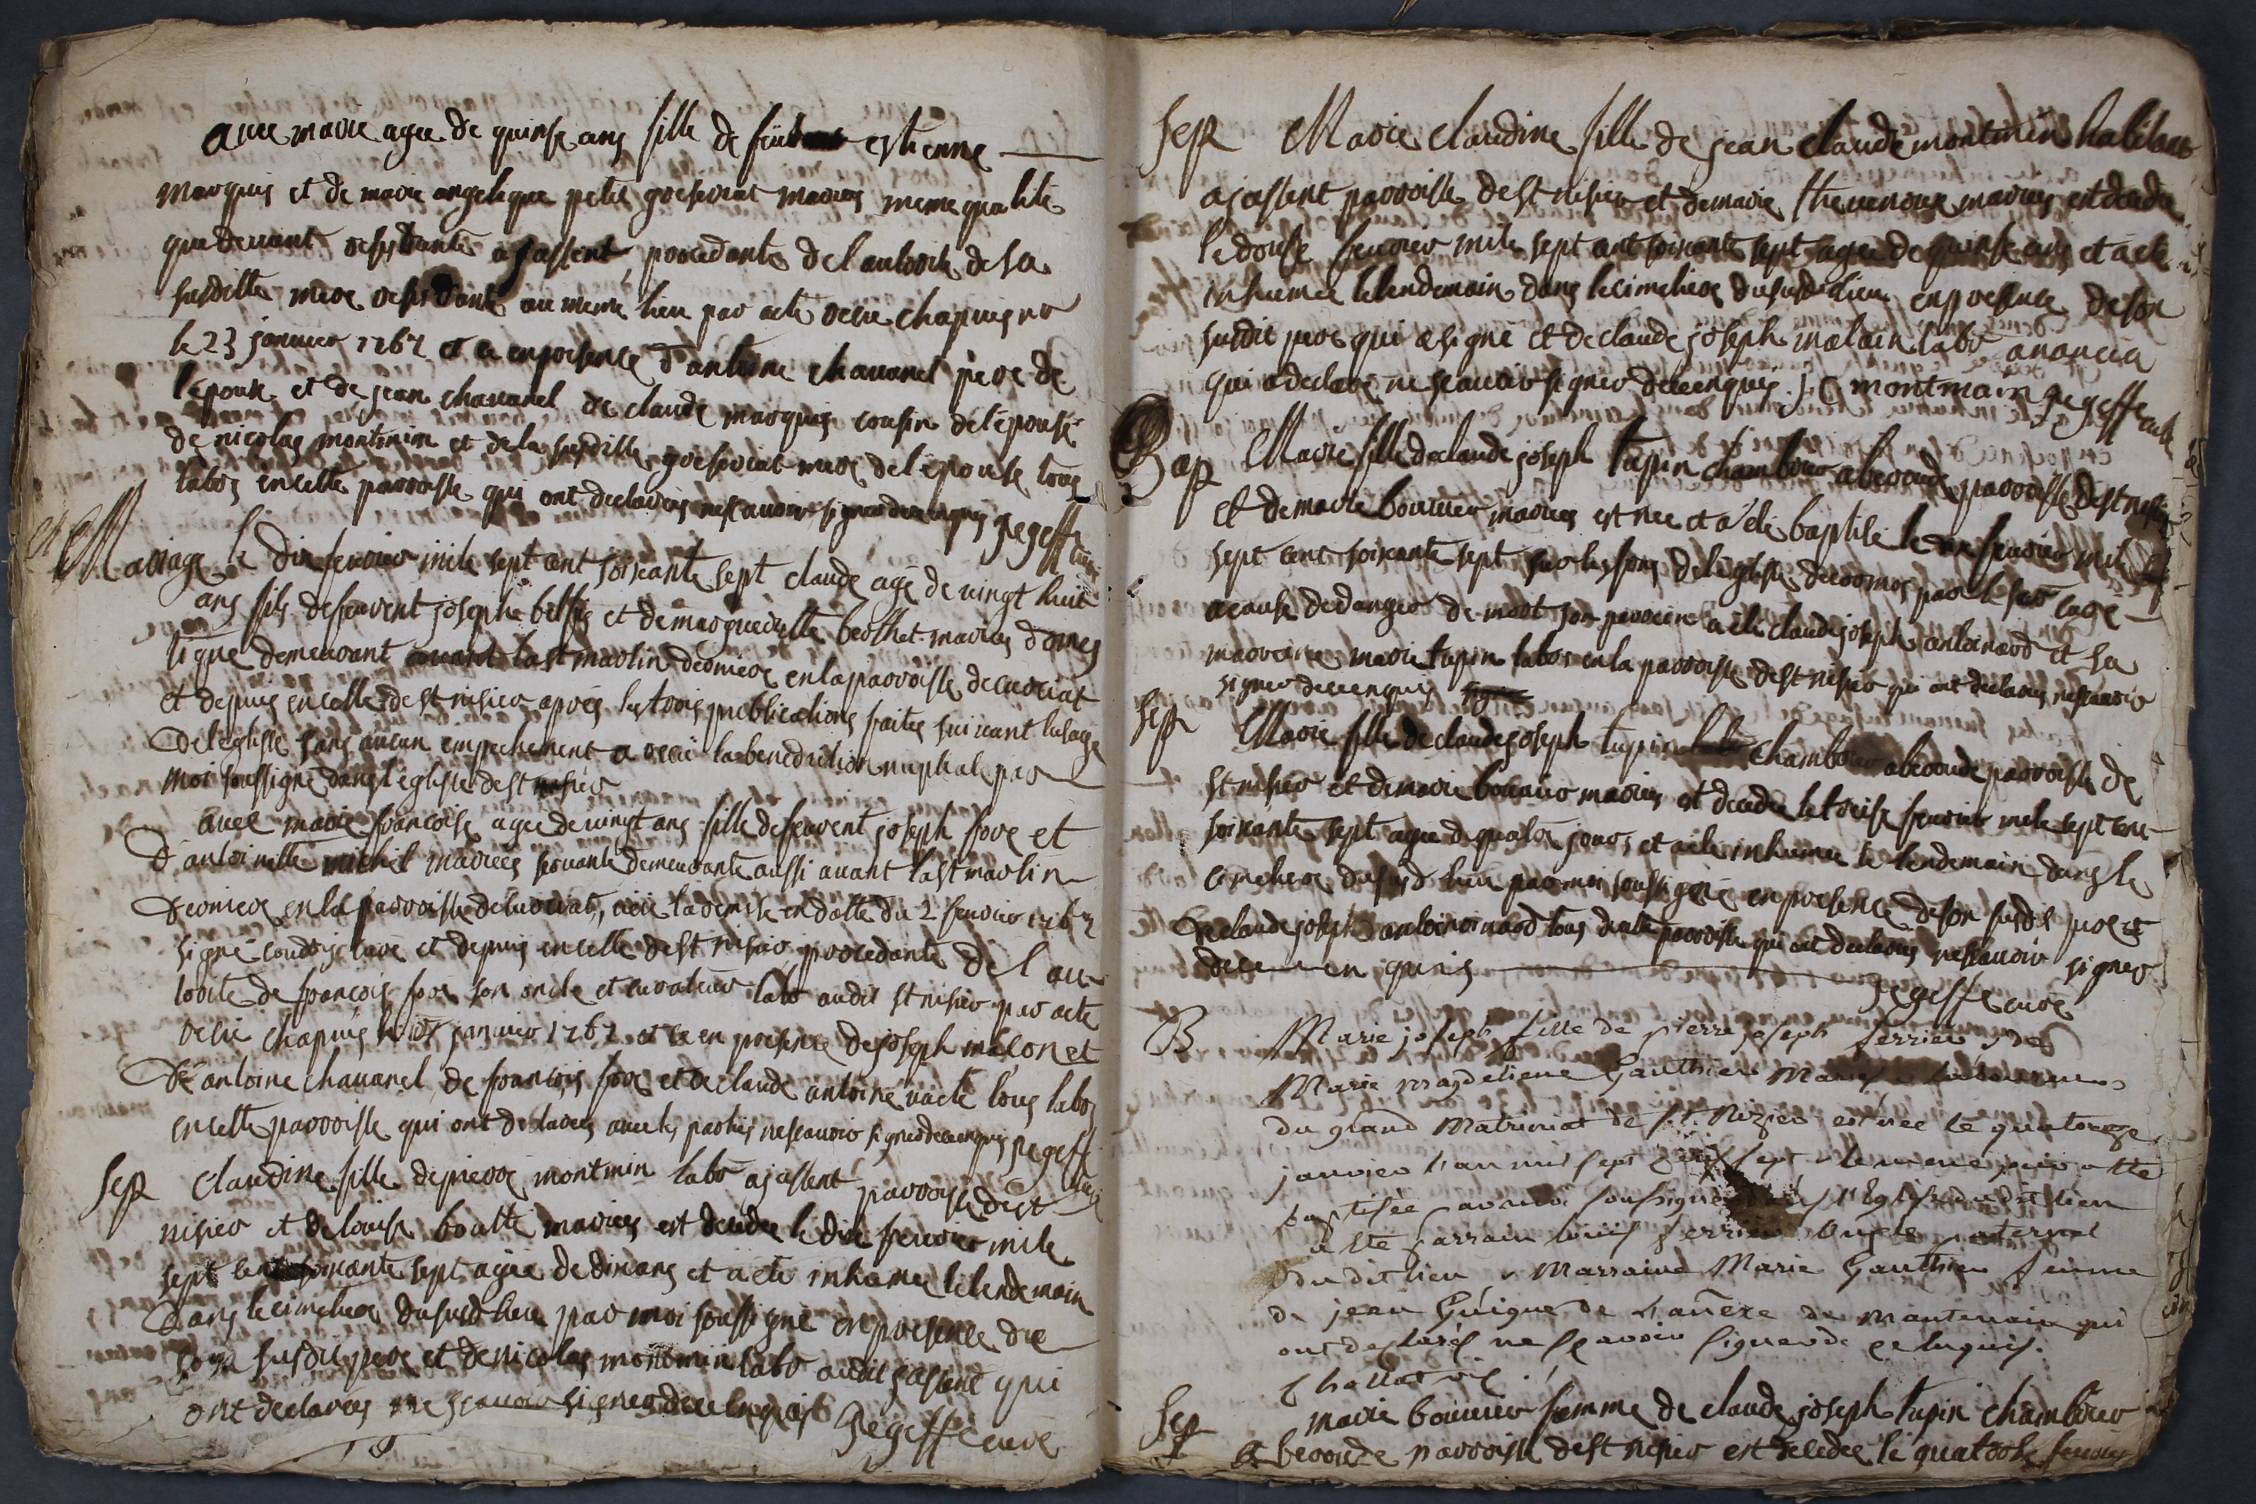 avec marie agee de quinse ans fille de feu estienne
marquis et de marie angelique petit goiseriat mariés meme qualité
que devant residante a jassent, procedante de l autorite de sa
susditte mere residante au meme lieu par acte recu chapuis nre
le 23 janvier 1767 et ce en presence d'antoine chavanel pere de
l'epoux et de jean chavanel de claude marquis cousin de l'epouse
de nicolas montmin et de la susditte goiseriat mere de l'epouse tous
labrs en cette parroisse qui ont declarés ne scavoir signer de ce enquis jegeffe curé
Mariage le dix fevrier mile sept cent soixante sept claude agé de vingt huit
ans fils de feu vent joseph et de marguerite berthet mariés domes
tique demeurant avant la st martin derniere en la parroisse de curciat
et depuis en celle de st nisier après les trois publications faites suivant lusage
de leglise sans aucun empechement a recu la benediction nuptiale par
moi soussigné dans l'eglise de st nisier
avec marie françoise agée de vingt ans fille de feu vent joseph fore et
d'antoinette michel mariés servante demeurante aussi avant la st martin
derniere en la parroisse de curciat, veu la remise en datte du 2 fevrier 1767
signé curé et depuis en celle de st nisier procedante de l au
torite de françois fore son oncle et curateur labr audit st nisier par acte
recu chapuis le janvier 1767 et ce en presence de joseph malon et
de antoine chavanel de françois fore et de claude antoine vacle tous labrs
en cette parroisse qui ont declarés avec les parties ne scavoir signer de ce enquis jegeffe curé
Sep Claudine fille de pierre montmin labr a jassent parroisse de st
nisier et de louise boutte mariés est decedee le dix fevrier mile
sept cent soixante sept agée de dix ans et a ete inhumee le lendemain
dans le cimetiere du susd lieu par moi soussigné en presence de
son susdit pere et de nicolas montmin labr audit jassent qui
ont declarés ne scavoir signer de ce enquis jegeffe curé
Sep Marie claudine fille de jean claude montmin habitant
a jassent parroisse de st nisier et de marie thevenoux mariés est decedee
le douse fevrier mile sept cent soixante sept agée de quinse ans et a ete
inhumee le lendemain dans le cimetiere du susdit lieu en presence de son
susdit pere qui a signé et de claude joseph malain labr
qui a declaré ne scavoir signer de ce enquis. J C montmain jegeffe curé
Bap Marie fille de claude joseph tupin chambrier a beroude parroisse de st nisier
et de marie bouvier mariés est nee et a eté baptisée le fevrier mil
sept cent soixante sept sur les fons de l'eglise de cormos par le sr curé
a cause de danger de mort son parrein a ete claude joseph antoinard et sa
marreine marie tupin labrs en la parroisse de st nisier qui ont declarés ne scavoir
signer de ce enquis
Sep Marie fille de claude joseph tupin chambrier a beroude parroisse de
st nisier et de marie bouvier mariés est decedee le treise fevrier mile sept cent
soixante sept agee de quatre jours et a ete inhumee le lendemain dans le
cimetiere du susd lieu par moi soussigné en presence de son susdit pere et
de claude joseph antoinard tous deux de cette parroisse qui ont declarés ne scavoir signer
de ce enquis
jegeffe curé
B Marie joseph fille de pierre joseph ferrier & de
Marie magdeliene Gauthier Mariés
du grand Matrignat de St. Nizier est née le quatorze
janvier l'an mil sept sept & le meme jour a été
baptisée par moi soussigné l'Eglise du dit lieu
a été parrain louis ferrier oncle paternel
du dit lieu & Marraine Marie Gauthier femme
de jean Guigue de l'anexe de Mantenaix qui
ont declarés ne scavoir signer de ce enquis.
Challat vic.
Sep marie bouvier femme de claude joseph tupin chambrier
a beroude parroisse de st nisier est decedee le quatorse fevrier